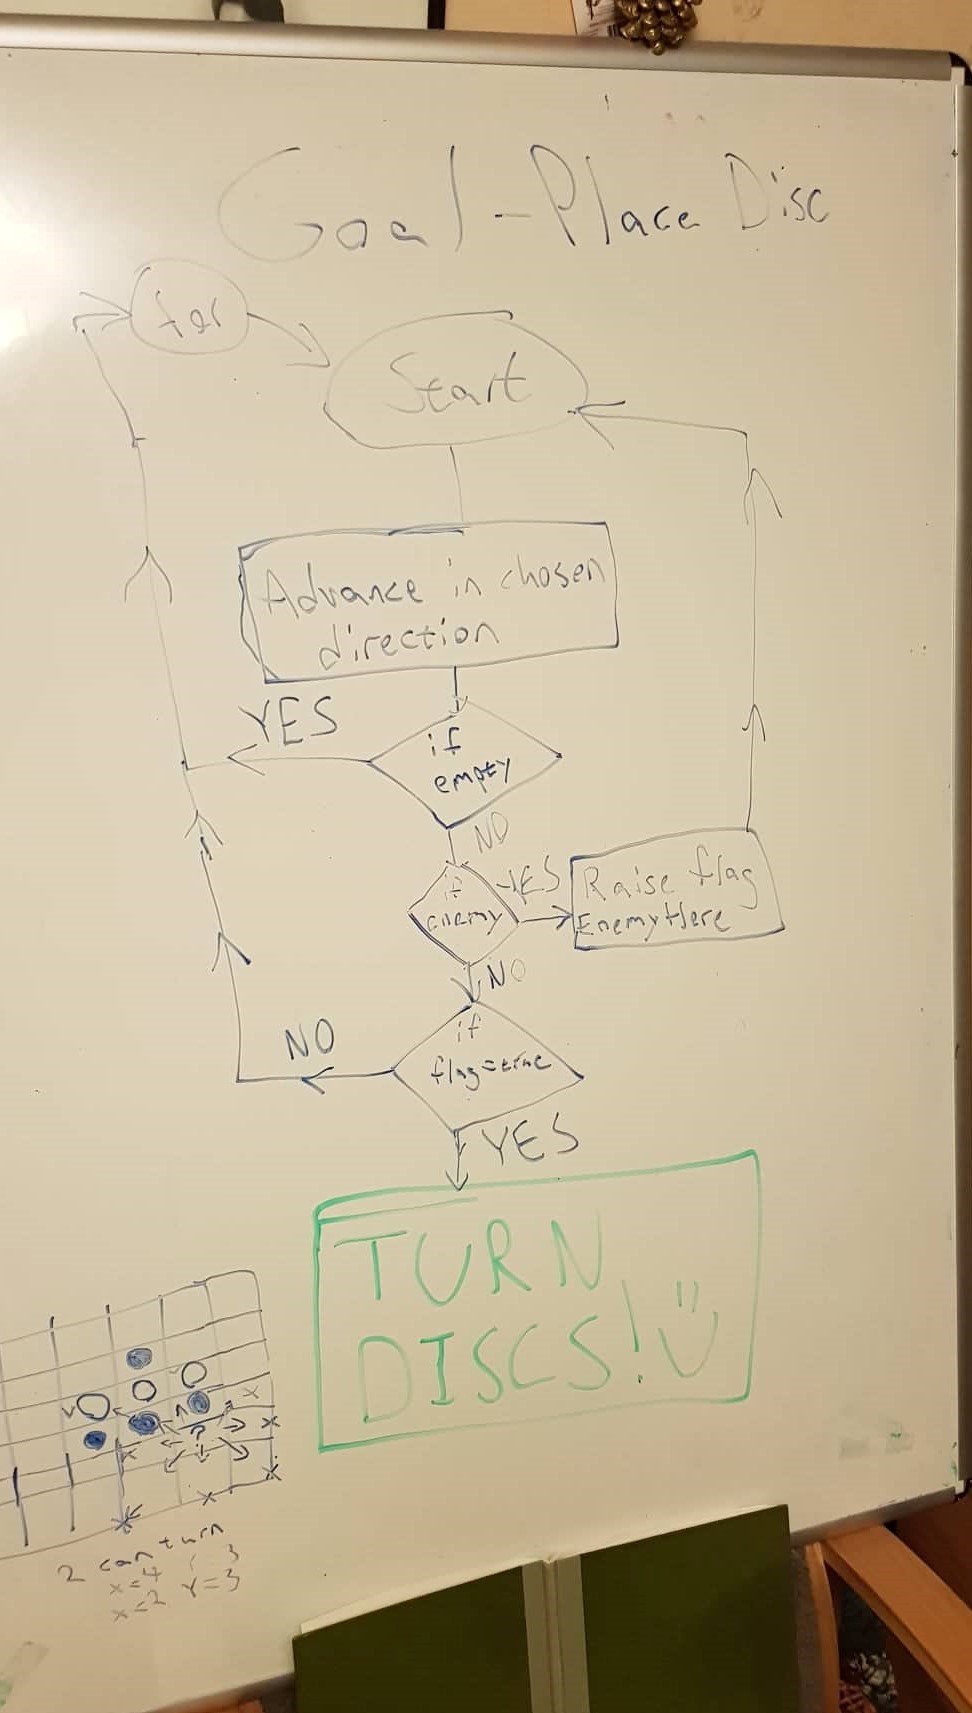 Goal - Place Disc
for
Start
Advance in chosen
direction
YES
if
empty
NO
if
enemy
YES
Raise flag
EnemyHere
NO
if
flag=true
NO
YES
TURN
DISCS! :)
?
2 can turn
x=4 3
x=2 Y=3